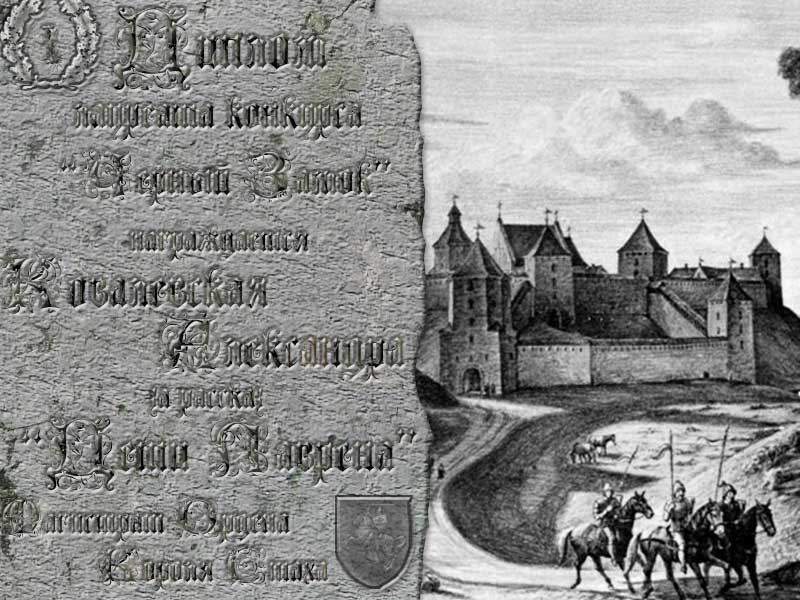 Диплом
лауреата конкурса
"Черный Замок"
награждается
Ковалевская
Александра
за рассказ
"Дети Лаврена"
Магистрат Ордена
Короля Стаха